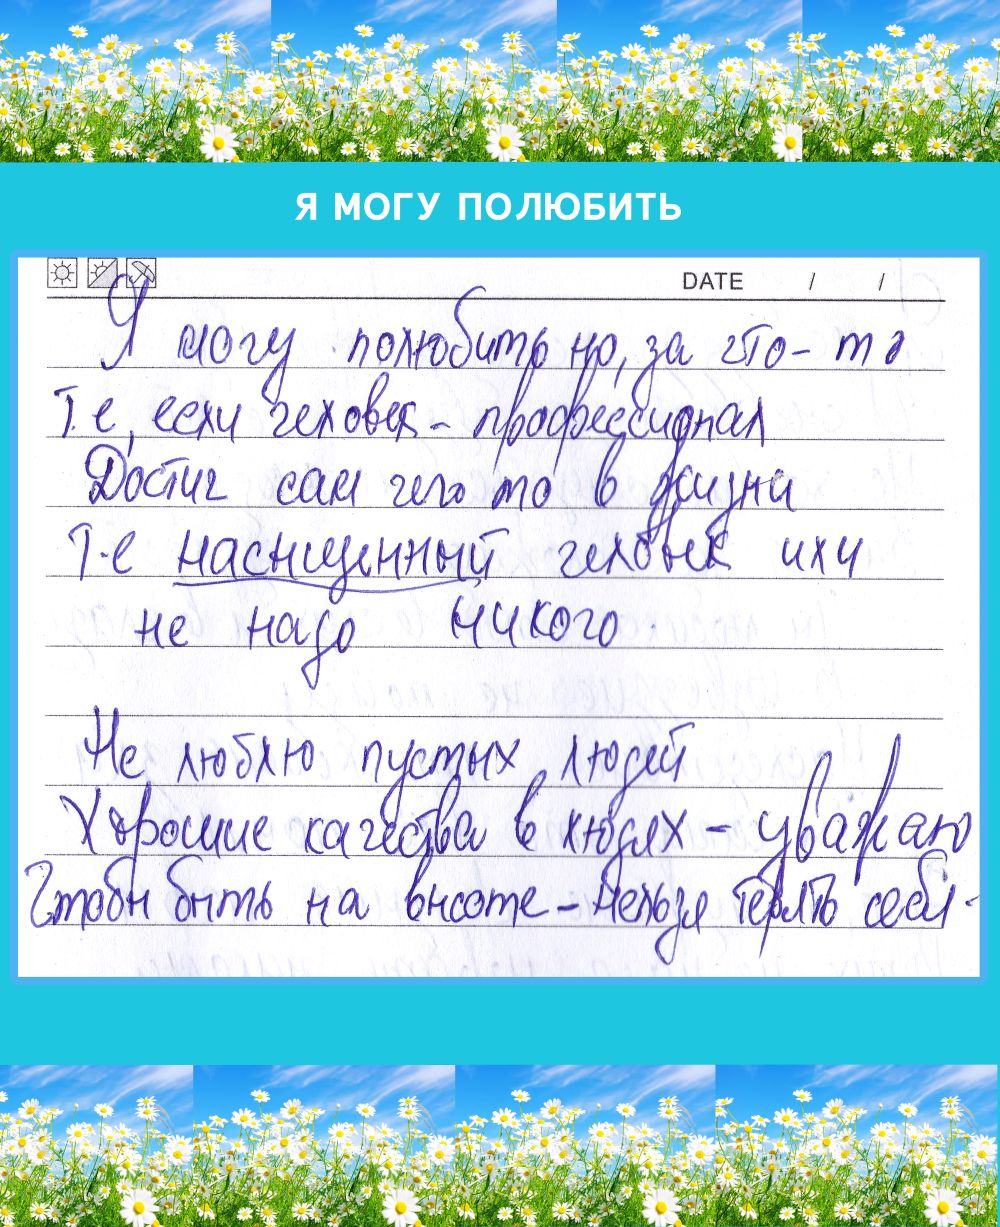 Я МОГУ ПОЛЮБИТЬ
DATE / /
Я могу полюбить но, за что-то
Т.е, если человек - профессионал
Достиг сам чего то в жизни
Т-е насыщенный человек или
не надо никого.
Не люблю пустых людей
Хорошие качества в людях - уважаю
Чтобы быть на высоте - нельзя терять себя.